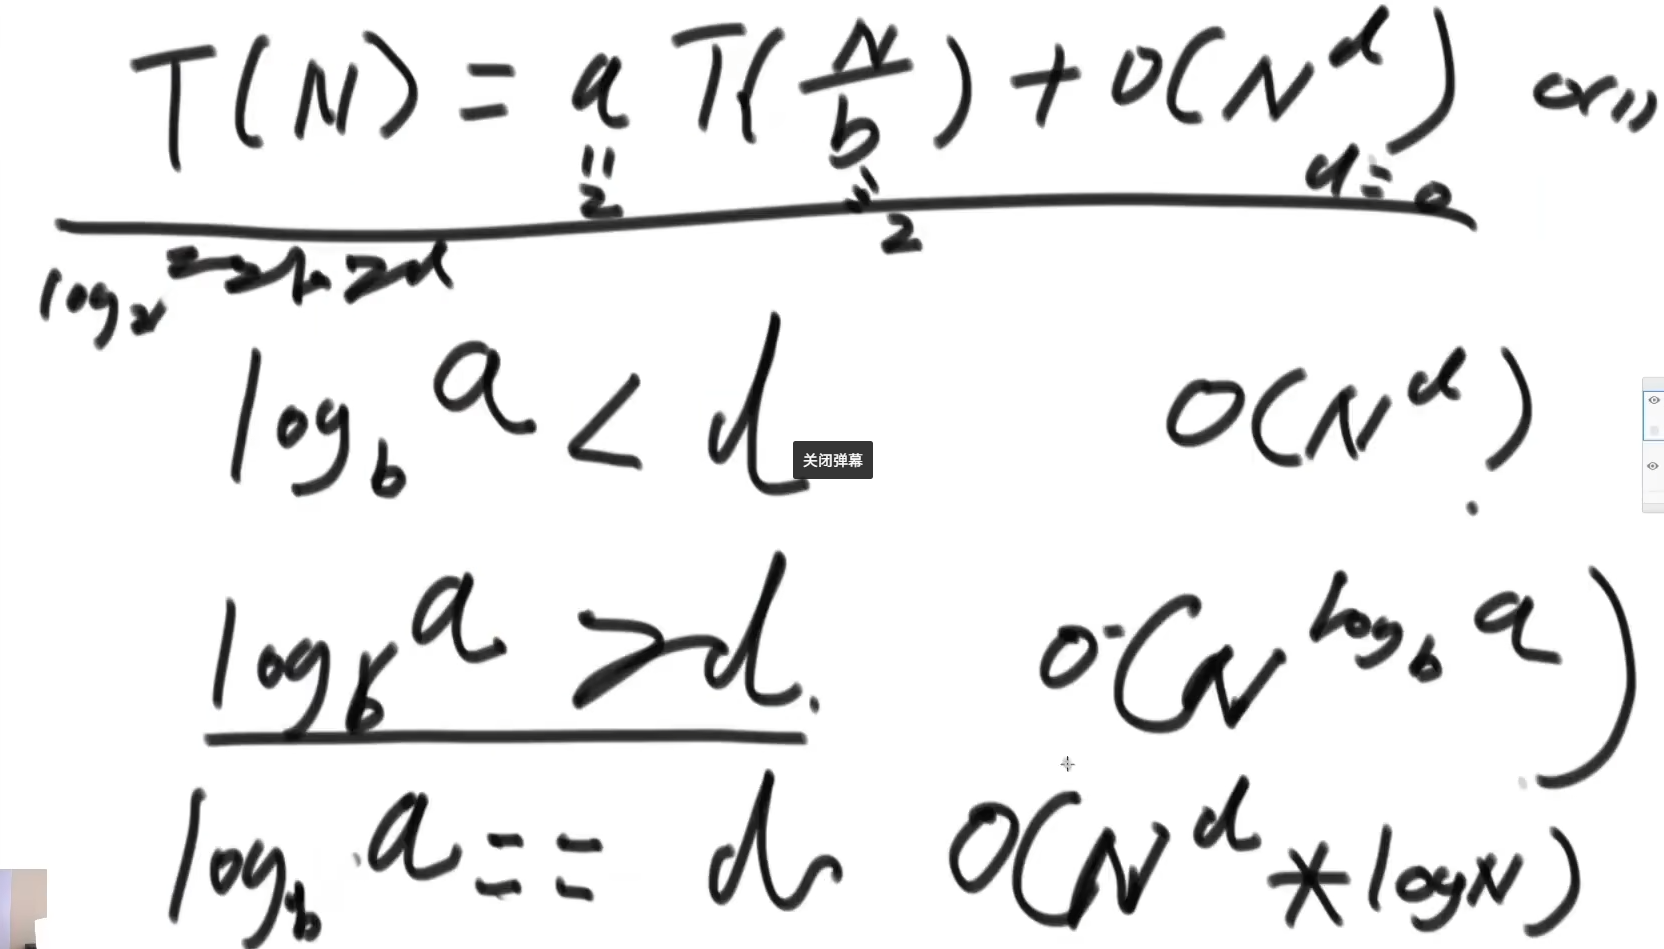 T(N) = a T(N/b) + O(N^d) O(1)
=2 =2 d=0
log_b a < d O(N^d)
关闭弹幕
log_b a > d. O(N^log_b a)
log_b a == d O(N^d * logN)